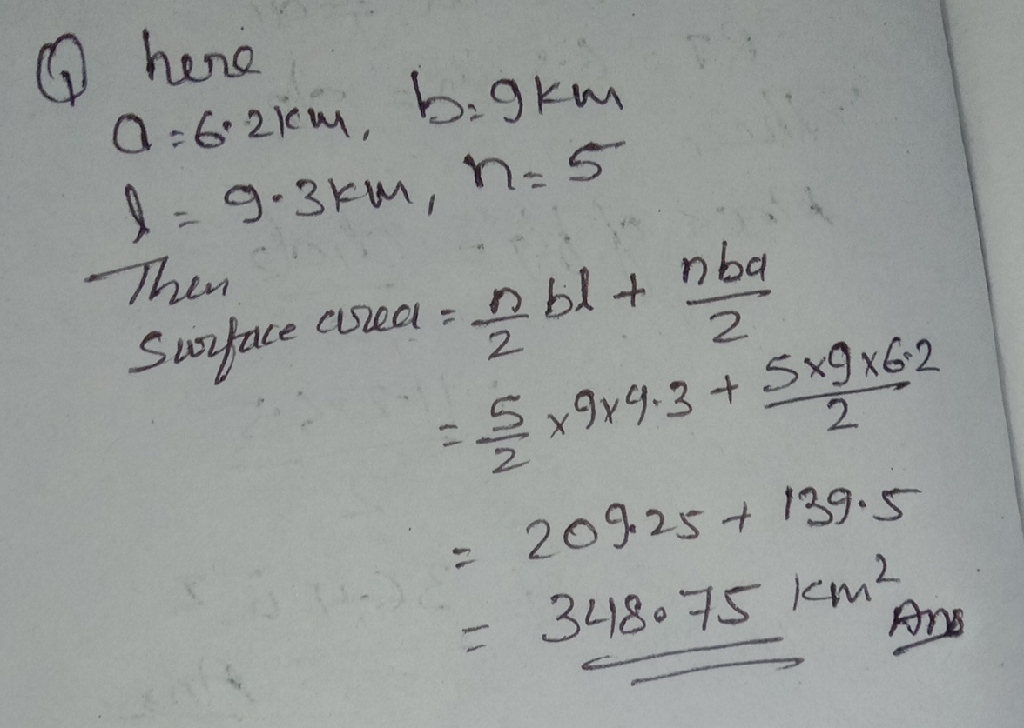 Q here
a = 6.2 km, b = 9 km
l = 9.3 km, n = 5
Then
Surface area = n/2 bl + nba/2
= 5/2 × 9 × 9.3 + 5×9×6.2/2
= 209.25 + 139.5
= 348.75 km² Ans